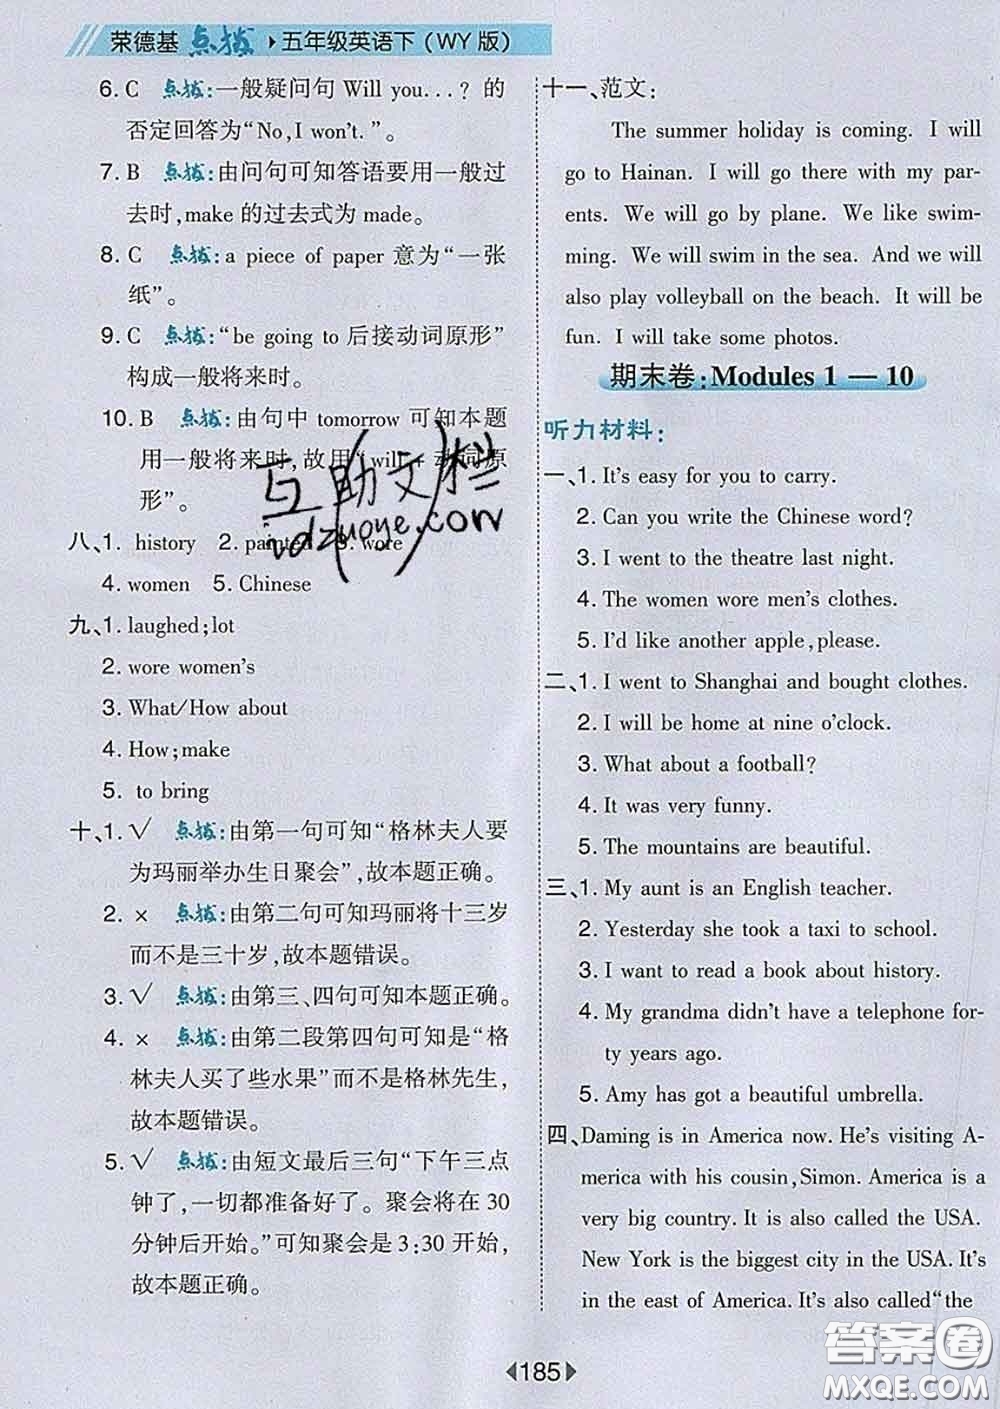 荣德基 点拨 ▸五年级英语下(WY版)
6. C 点拨:一般疑问句 Will you...? 的
否定回答为“No, I won't.”。
7. B 点拨:由问句可知答语要用一般过
去时,make 的过去式为 made。
8. C 点拨:a piece of paper 意为“一张
纸”。
9. C 点拨:“be going to 后接动词原形”
构成一般将来时。
10. B 点拨:由句中 tomorrow 可知本题
用一般将来时,故用“will+动词原
形”。
八、1. history 2. painted 3. wore
4. women 5. Chinese
九、1. laughed;lot
2. wore women's
3. What/How about
4. How;make
5. to bring
十、1. √ 点拨:由第一句可知“格林夫人要
为玛丽举办生日聚会”,故本题正确。
2. × 点拨:由第二句可知玛丽将十三岁
而不是三十岁,故本题错误。
3. √ 点拨:由第三、四句可知本题正确。
4. × 点拨:由第二段第四句可知是“格
林夫人买了些水果”而不是格林先生,
故本题错误。
5. √ 点拨:由短文最后三句“下午三点
钟了,一切都准备好了。聚会将在 30
分钟后开始。”可知聚会是 3:30 开始,
故本题正确。
十一、范文:
The summer holiday is coming. I will
go to Hainan. I will go there with my par-
ents. We will go by plane. We like swim-
ming. We will swim in the sea. And we will
also play volleyball on the beach. It will be
fun. I will take some photos.
期末卷:Modules 1 — 10
听力材料:
一、1. It's easy for you to carry.
2. Can you write the Chinese word?
3. I went to the theatre last night.
4. The women wore men's clothes.
5. I'd like another apple, please.
二、1. I went to Shanghai and bought clothes.
2. I will be home at nine o'clock.
3. What about a football?
4. It was very funny.
5. The mountains are beautiful.
三、1. My aunt is an English teacher.
2. Yesterday she took a taxi to school.
3. I want to read a book about history.
4. My grandma didn't have a telephone for-
ty years ago.
5. Amy has got a beautiful umbrella.
四、Daming is in America now. He's visiting A-
merica with his cousin, Simon. America is a
very big country. It is also called the USA.
New York is the biggest city in the USA. It's
in the east of America. It's also called“the
185
互助文栏
idzuoye.com
答案圈
MXQE.COM